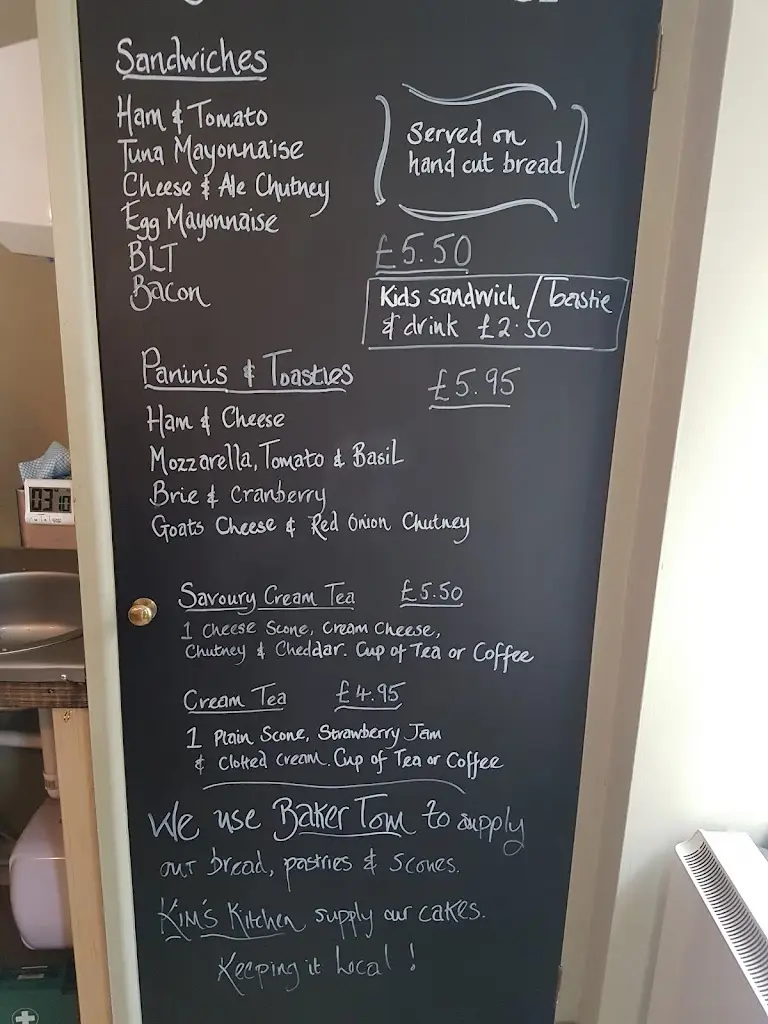 Sandwiches
Ham & Tomato
Tuna Mayonnaise
Cheese & Ale Chutney
Egg Mayonnaise
BLT
Bacon
Served on
hand cut bread
£5.50
Kids sandwich / Toastie
& drink £2.50
Paninis & Toasties £5.95
Ham & Cheese
Mozzarella, Tomato & Basil
Brie & Cranberry
Goats Cheese & Red Onion Chutney
Savoury Cream Tea £5.50
1 Cheese Scone, Cream Cheese,
Chutney & Cheddar. Cup of Tea or Coffee
Cream Tea £4.95
1 Plain Scone, Strawberry Jam
& Clotted cream. Cup of Tea or Coffee
We use Baker Tom to supply
our bread, pastries & scones.
Kim's Kitchen supply our cakes.
Keeping it Local !